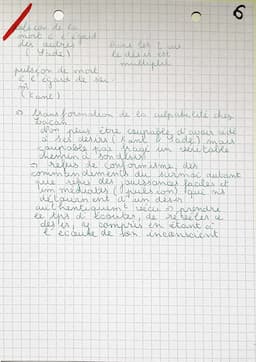 6
pulsion de la
mort à l'égard
des autres
(Sade)
Dans les 2 cas
le désir est
multiplié
pulsion de mort
à l'égard de soi
m̂
(Kant)
transformation de la culpabilité chez
Lacan
d'on peut être coupable d'avoir cédé
à ses désirs (Kant & Sade) mais
coupable pas tracé un véritable
chemin à son désir
refus de conformisme, des
commandements du surmoi autant
que refus des jouissances faciles et
immédiates (pulsion) que ns
détournent d'un désir
authentiquement vécu prendre
le tps d'écouter, de révéler ce
désir, y compris en étant à
l'écoute de son inconscient